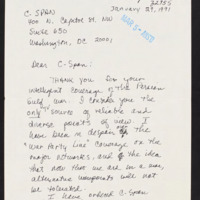 32955
JANUARY 29, 1991
C SPAN
400 N. Capitol St. NW
Suite 650
Washington, DC 20001
Dear C-Span:
Thank you for your
intelligent coverage of the Persian
Gulf War. I consider you the
only source of reliable and
diverse points of view. I
have been in despair the
"War Party Line" coverage on the
major networks, and the idea
that now that we are in a war
alternative viewpoints will not
be tolerated.
I have ordered C-Span